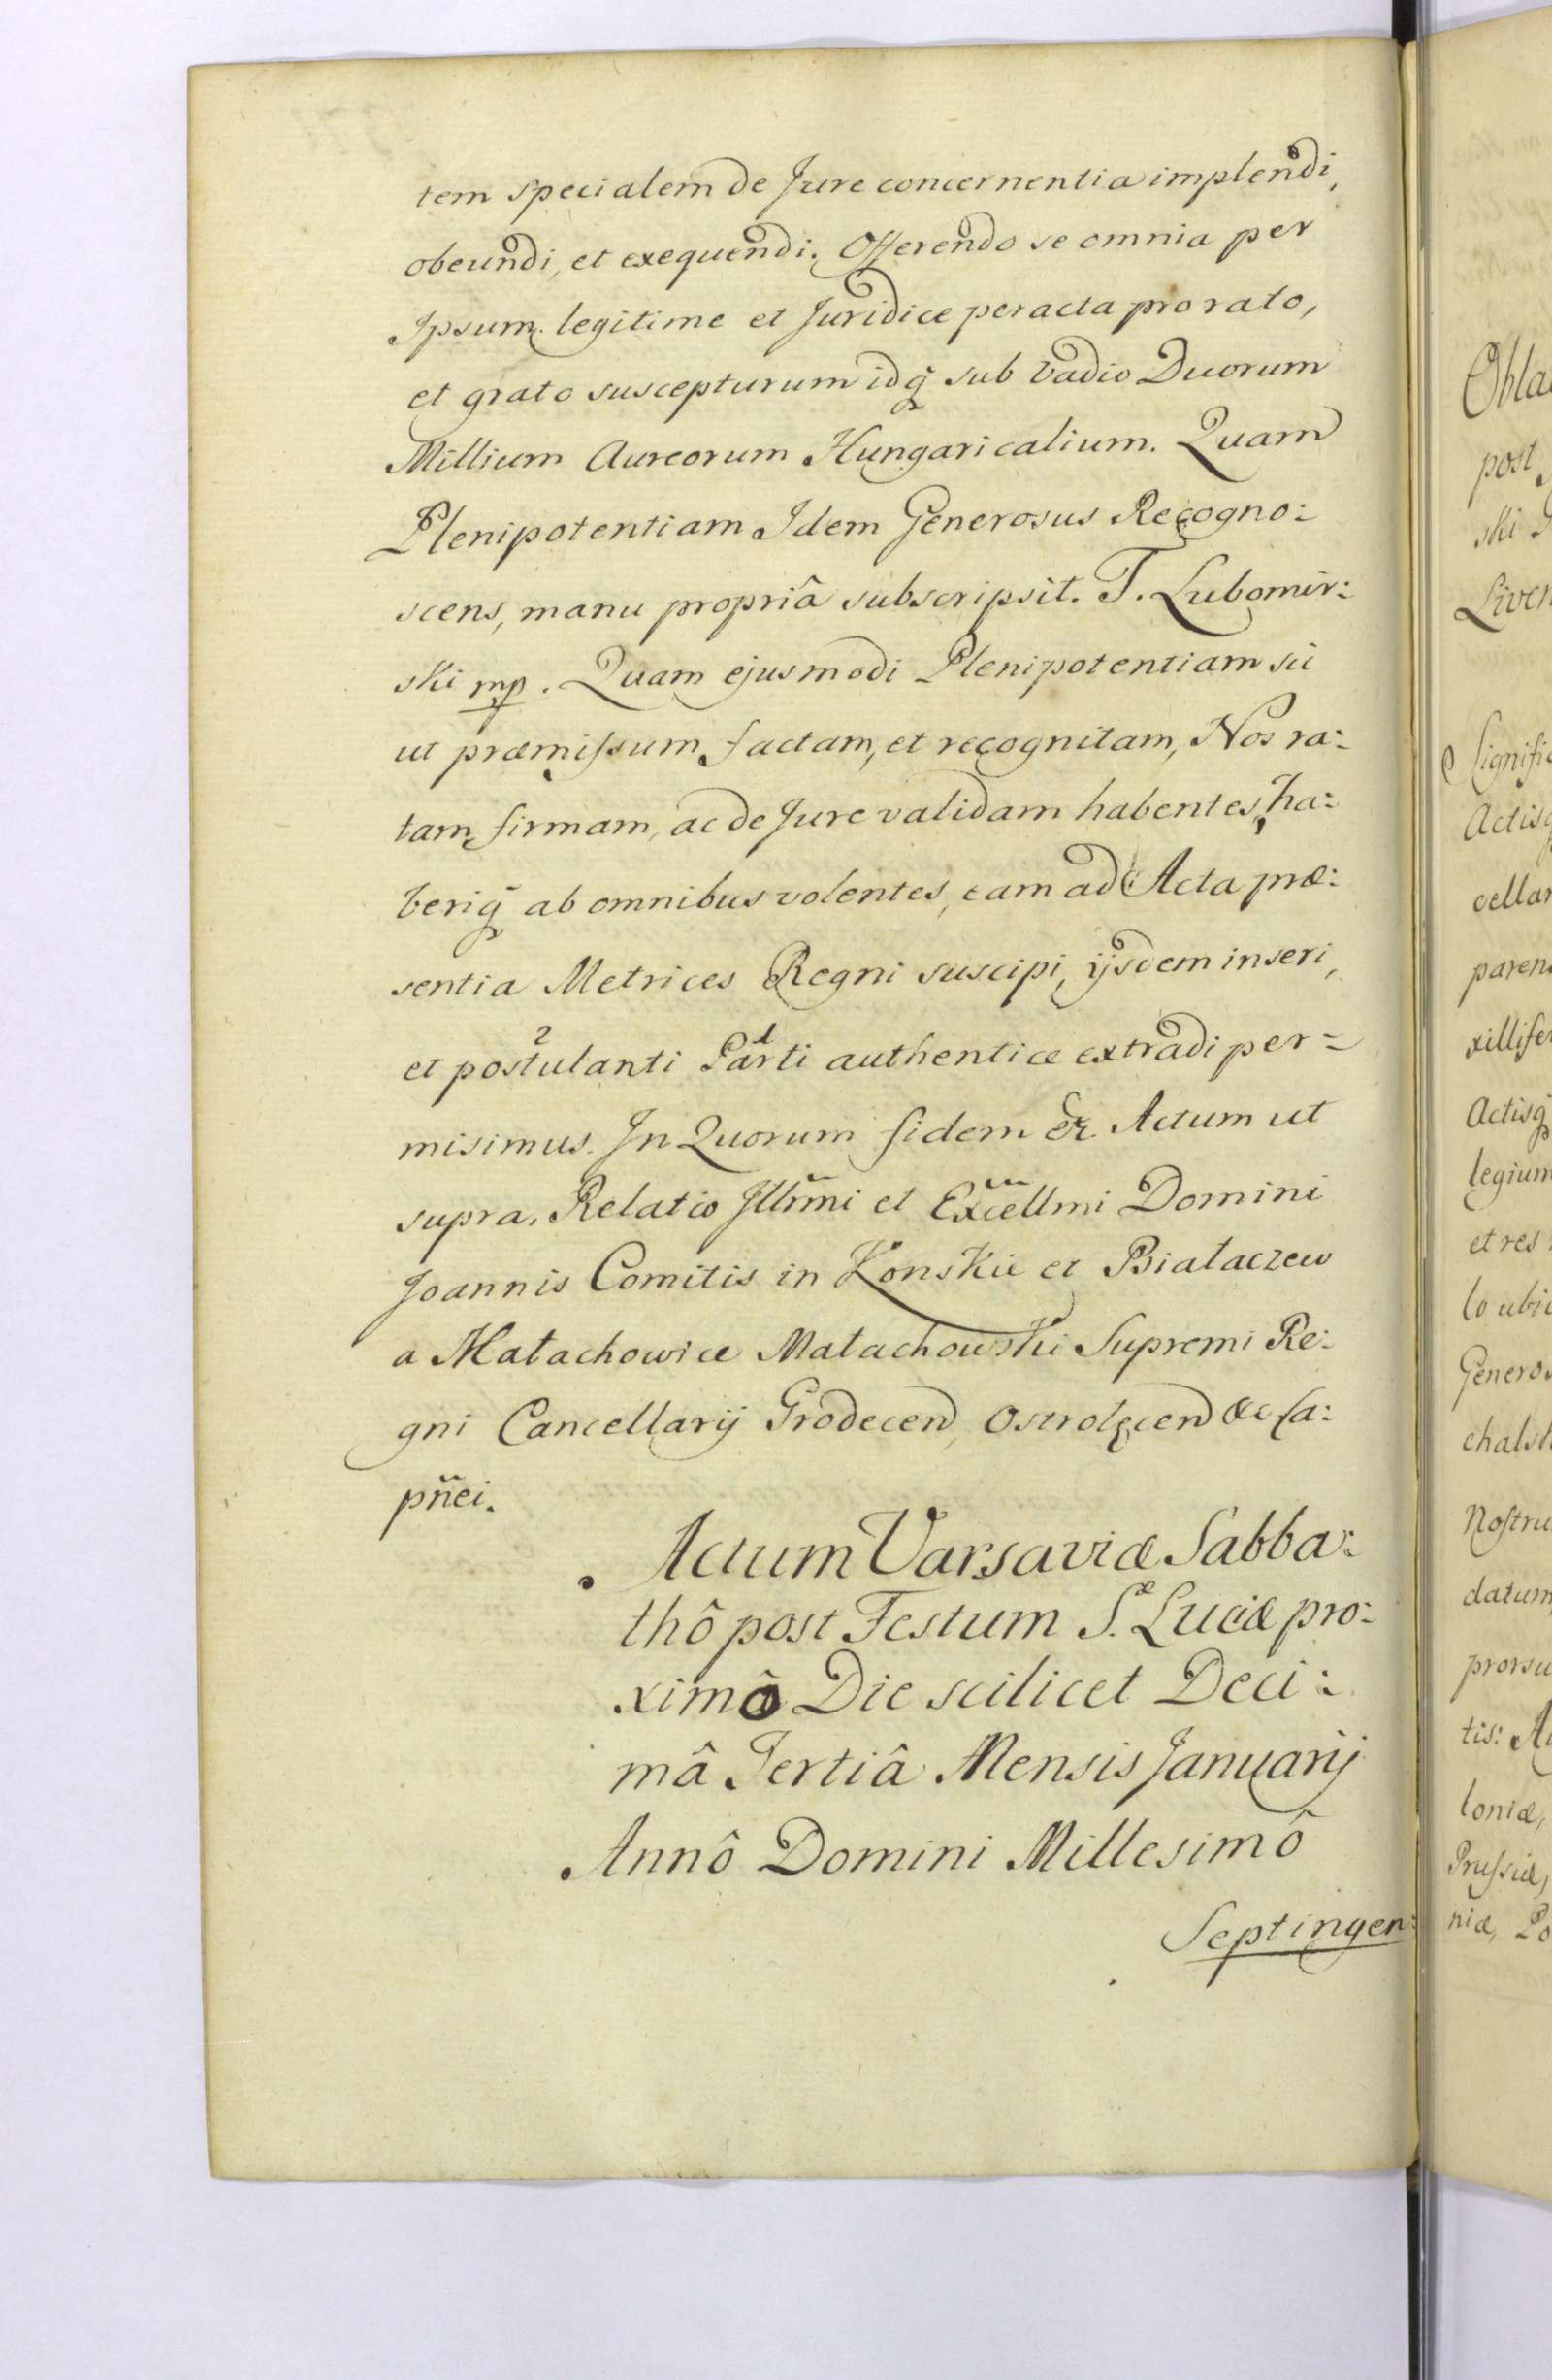 tem specialem de Jure concernentia implendi,
obeundi, et exequendi. Offerendo se omnia per
Ipsum legitime et Juridice peracta pro rato,
et grato suscepturum idq̃ sub vadio Duorum
Millium Aureorum Hungaricalium. Quam
Plenipotentiam Idem Generosus Recogno:
scens, manu propriâ subscripsit. T. Lubomir:
ski mp. Quam ejusmodi Plenipotentiam sic
ut præmissum factam, et recognitam, Nos ra:
tam firmam, ac de Jure validam habentes, ha:
beriq̃ ab omnibus volentes, eam ad Acta præ:
sentia Metrices Regni suscipi, ijsdem inseri,
et postulanti Parti authentice extradi per=
misimus. In Quorum fidem &c Actum ut
supra. Relatio Jllrmi et Excellmi Domini
Joannis Comitis in Konskie et Białaczew
a Małachowice Małachowski Supremi Re:
gni Cancellarij Grodecen, Ostrolęcen &c Ca:
pñei.
Actum Varsaviæ Sabba:
thô post Festum S.æ Luciæ pro:
ximô Die scilicet Deci:
mâ Tertiâ Mensis Januarij
Annô Domini Millesimô
Septingen:
Obla
post
ski
Liven
Signific
Actisq
cellar
paren
xillifer
Actisq̃
legium
et res
lo ubi
Genero
chalsk
Nostru
datum
prorsu
tis: A
loniæ,
Prussiæ,
niæ, Po